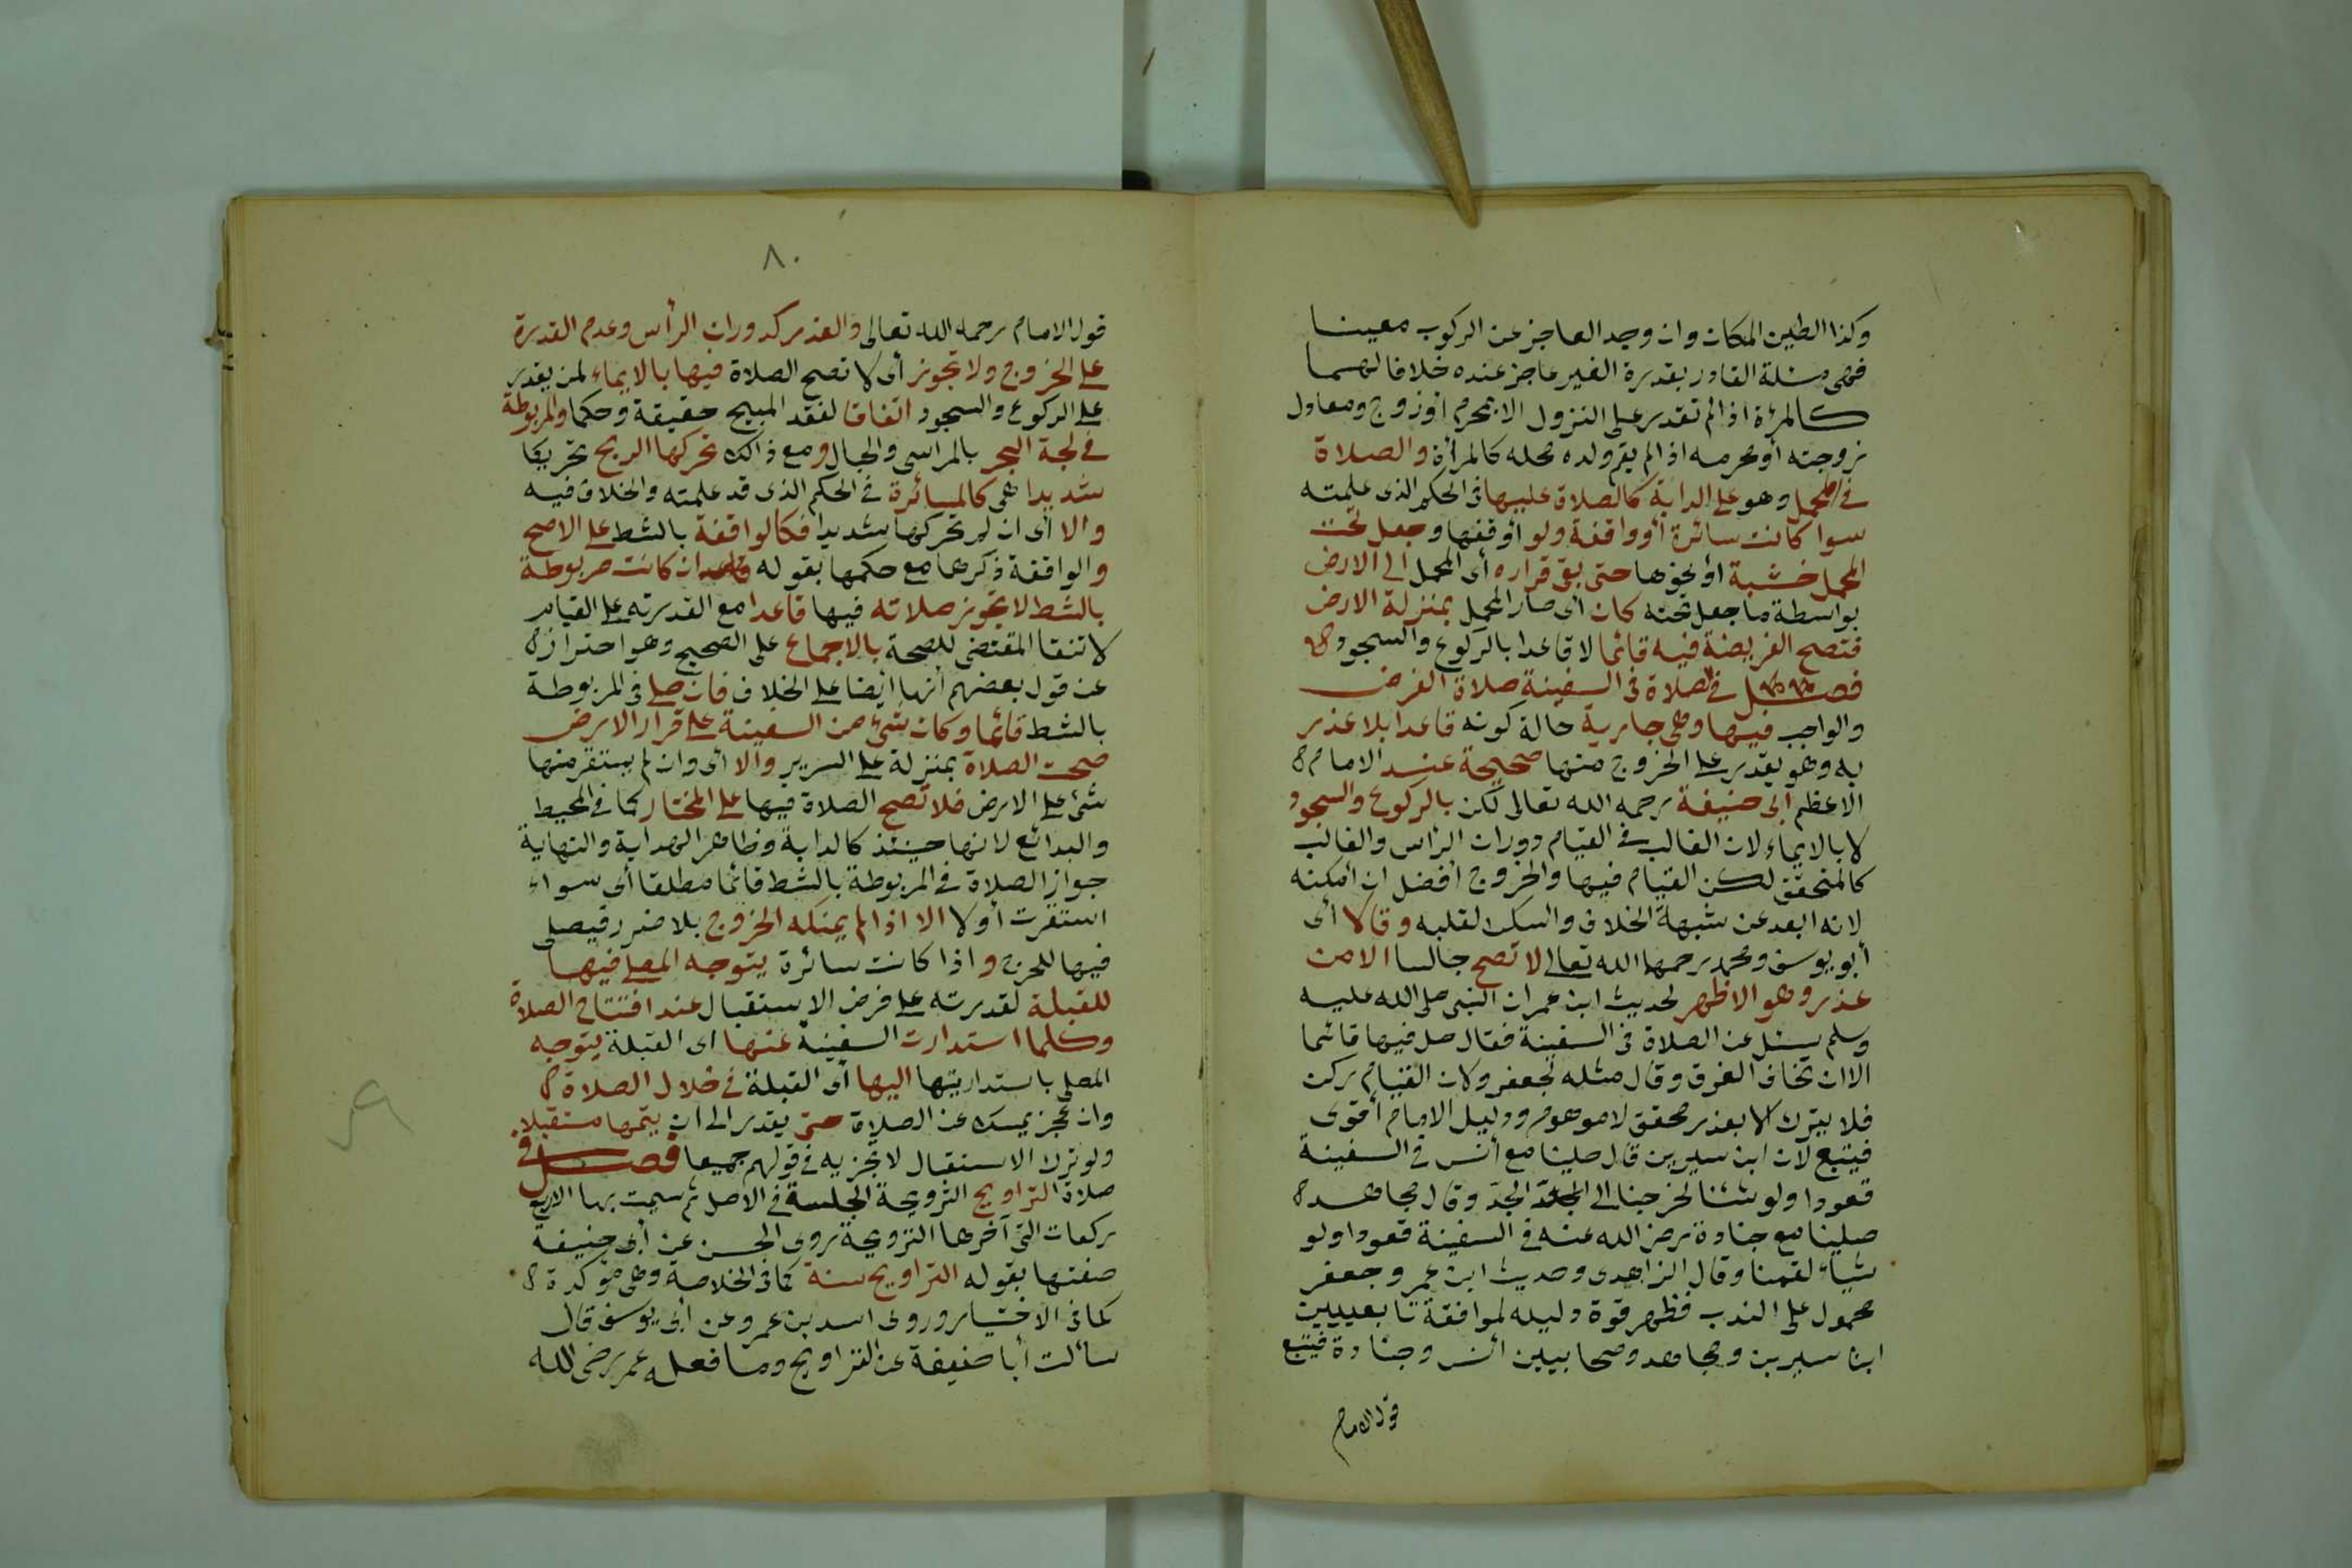 وكذا الطين المكان وان وجد العاجز عن الركوب معينا
فهى مسئلة القادر بقدرة الغير عاجز عنده خلافا لهما
كالمرأة اذا لم تقدر على النزول الا بمحرم أوزوج ومعادل
زوجته أومحرمه اذا لم يقم ولده محله كالمرأة والصلاة
فى المحمل وهو على الدابة كالصلاة عليها فى الحكم الذى علمته
سوا كانت سائرة أو واقفة ولو أوقفها وجعل تحت
المحمل خشبة أو نحوها حتى بقى قراره أى المحمل الى الارض
بواسطة ما جعل تحته كان أى صار المحمل بمنزلة الارض
فتصح الفريضة فيه قائما لا قاعدا بالركوع والسجود
فصل فى الصلاة فى السفينة صلاة الفرض
والواجب فيها وهى جارية حالة كونه قاعدا بلا عذر
به وهو يقدر على الخروج منها صحيحة عند الامام
الاعظم أبى حنيفة رحمه الله تعالى لكن بالركوع والسجود
لا بالايماء لان الغالب فى القيام دوران الرأس والغالب
كالمتحقق لكن القيام فيها والخروج أفضل ان أمكنه
لانه ابعد عن شبهة الخلاف والسكن لقلبه وقالا أى
أبو يوسف ومحمد رحمهما الله تعالى لا تصح جالسا الا من
عذر وهو الاظهر لحديث ابن عمر ان النبى صلى الله عليه
وسلم سئل عن الصلاة فى السفينة فقال صل فيها قائما
الا ان تخاف الغرق وقال مثله لجعفر ولان القيام ركن
فلا يترك الا بعذر محقق لا موهوم ودليل الامام أقوى
فيتبع لان ابن سيرين قال صلينا مع أنس فى السفينة
قعودا ولو شئنا لخرجنا الى الجد وقال مجاهد
صلينا مع جنادة رضى الله عنه فى السفينة قعودا ولو
شياء لقمنا وقال الزاهدى وحديث ابن عمر وجعفر
محمول على الندب فظهر قوة دليله لموافقة تابعيين
ابن سيرين ومجاهد وصحابيين أنس وجنادة فيتبع
قول الامام
٨٠
قول الامام رحمه الله تعالى والعذر كدوران الرأس وعدم القدرة
على الخروج ولا تجوز أى لا تصح الصلاة فيها بالايماء لمن يقدر
على الركوع والسجود اتفاقا لفقد المبيح حقيقة وحكما والمربوطة
فى لجة البحر بالمراسى والحبال ومع ذالك تحركها الريح تحريكا
شديدا هى كالسائرة فى الحكم الذى قد علمته والخلاف فيه
والا أى ان لم تحركها شديدا فكالواقفة بالشط على الاصح
والواقفة ذكرها مع حكمها بقوله وان كانت مربوطة
بالشط لا تجوز صلاته فيها قاعدا مع القدرته على القيام
لانتفا المقتضى للصحة بالاجماع على الصحيح وهو احتراز
عن قول بعضهم أنها أيضا على الخلاف فان صلى فى المربوطة
بالشط قائما وكان شئ من السفينة على قرار الارض
صحت الصلاة بمنزلة على السرير والا أى وان لم يستقر منها
شئ على الارض فلا تصح الصلاة فيها على المختار كما فى المحيط
والبدائع لانها حينئذ كالدابة وظاهر الهداية والنهاية
جواز الصلاة فى المربوطة بالشط قائما مطلقا أى سواء
استقرت أو لا الا اذا لم يمكنه الخروج بلا ضرر فيصلى
فيها للحرج واذا كانت سائرة يتوجه المصلى فيها
للقبلة لقدرته على فرض الاستقبال عند افتتاح الصلاة
وكلما استدارت السفينة عنها اى القبلة يتوجه
المصلى باستدارتها اليها أى القبلة فى خلال الصلاة
وان عجز يمسك عن الصلاة حتى يقدر الى ان يتمها مستقبلا
ولو ترك الاستقبال لا تجزيه فى قولهم جميعا فصل فى
صلاة التراويح الترويحة الجلسة فى الاصل ثم سميت بها الاربع
ركعات التى آخرها الترويحة روى الحسن عن أبى حنيفة
صفتها بقوله التراويح سنة كما فى الخلاصة وهى مؤكدة
كما فى الاختيار وروى اسد بن عمرو عن أبى يوسف قال
سألت أبا حنيفة عن التراويح وما فعله عمر رضى الله